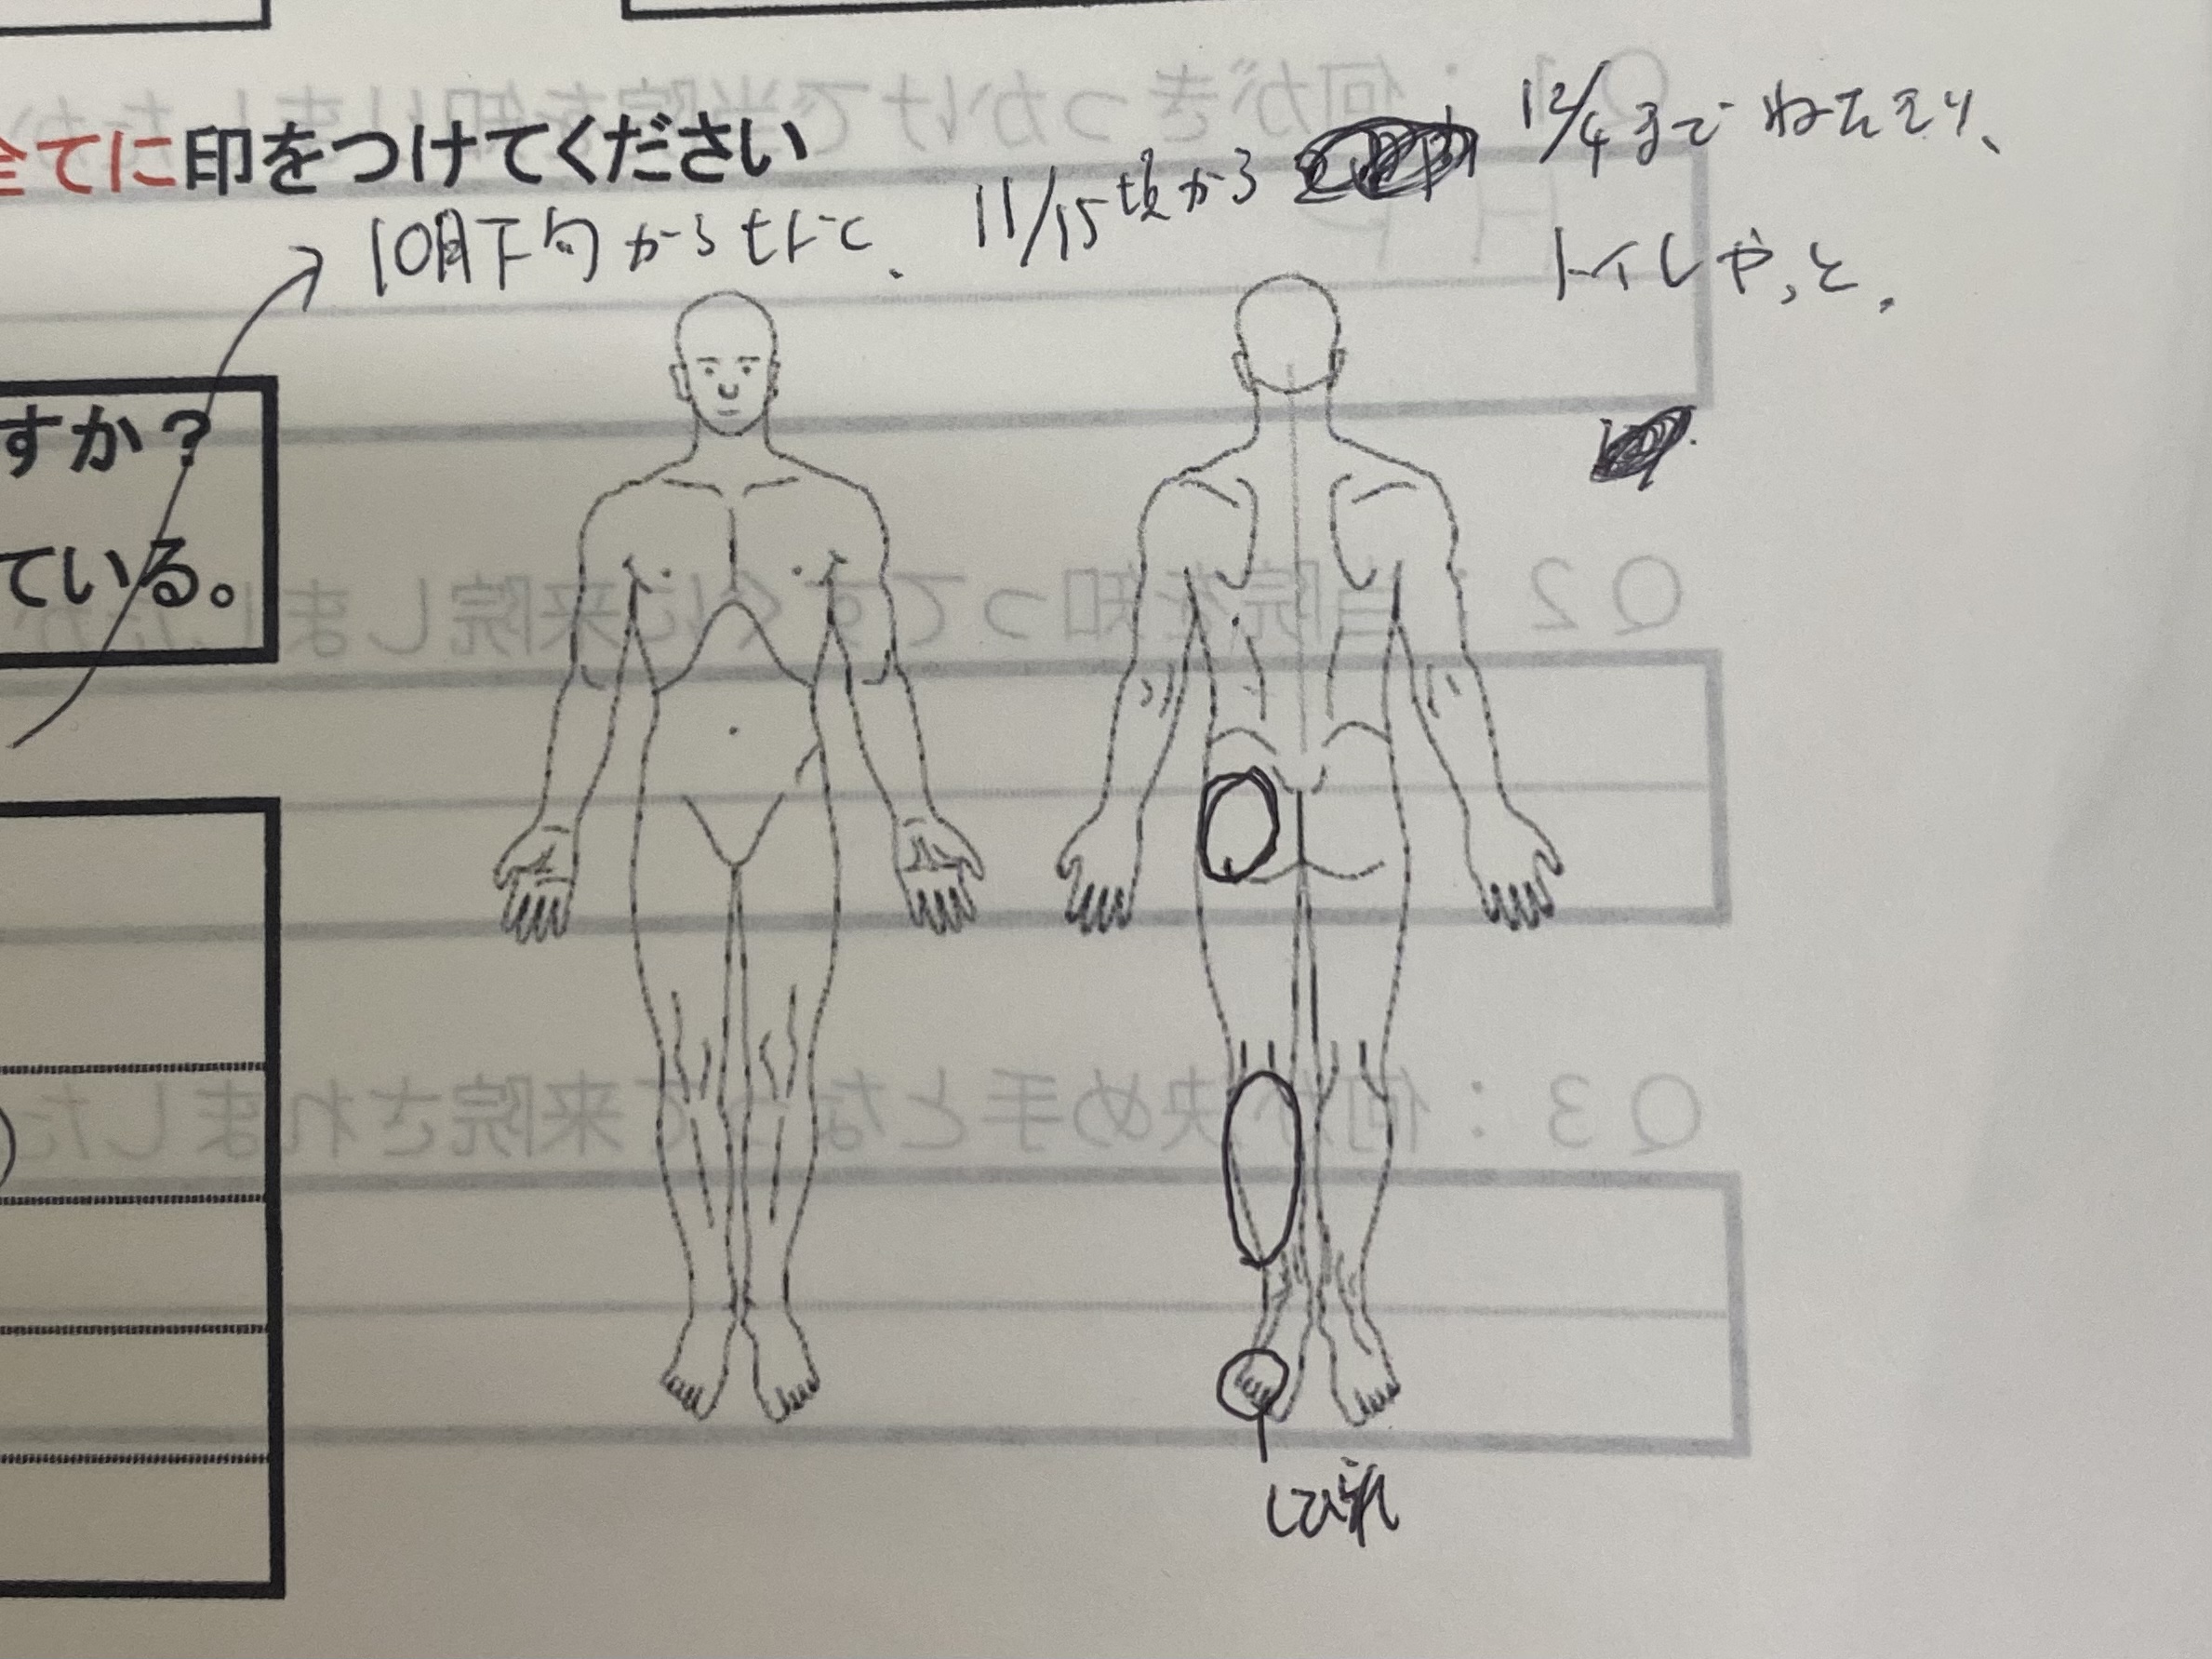 全てに印をつけてください
10月下旬から
11/15
から
12/4までねたきり、
トイレやっと。
すか？
ている。
しびれ
Q1：何がきっかけで当院を知りましたか
Q2：当院を知ってすぐに来院しましたか
Q3：何が決め手となって来院されました